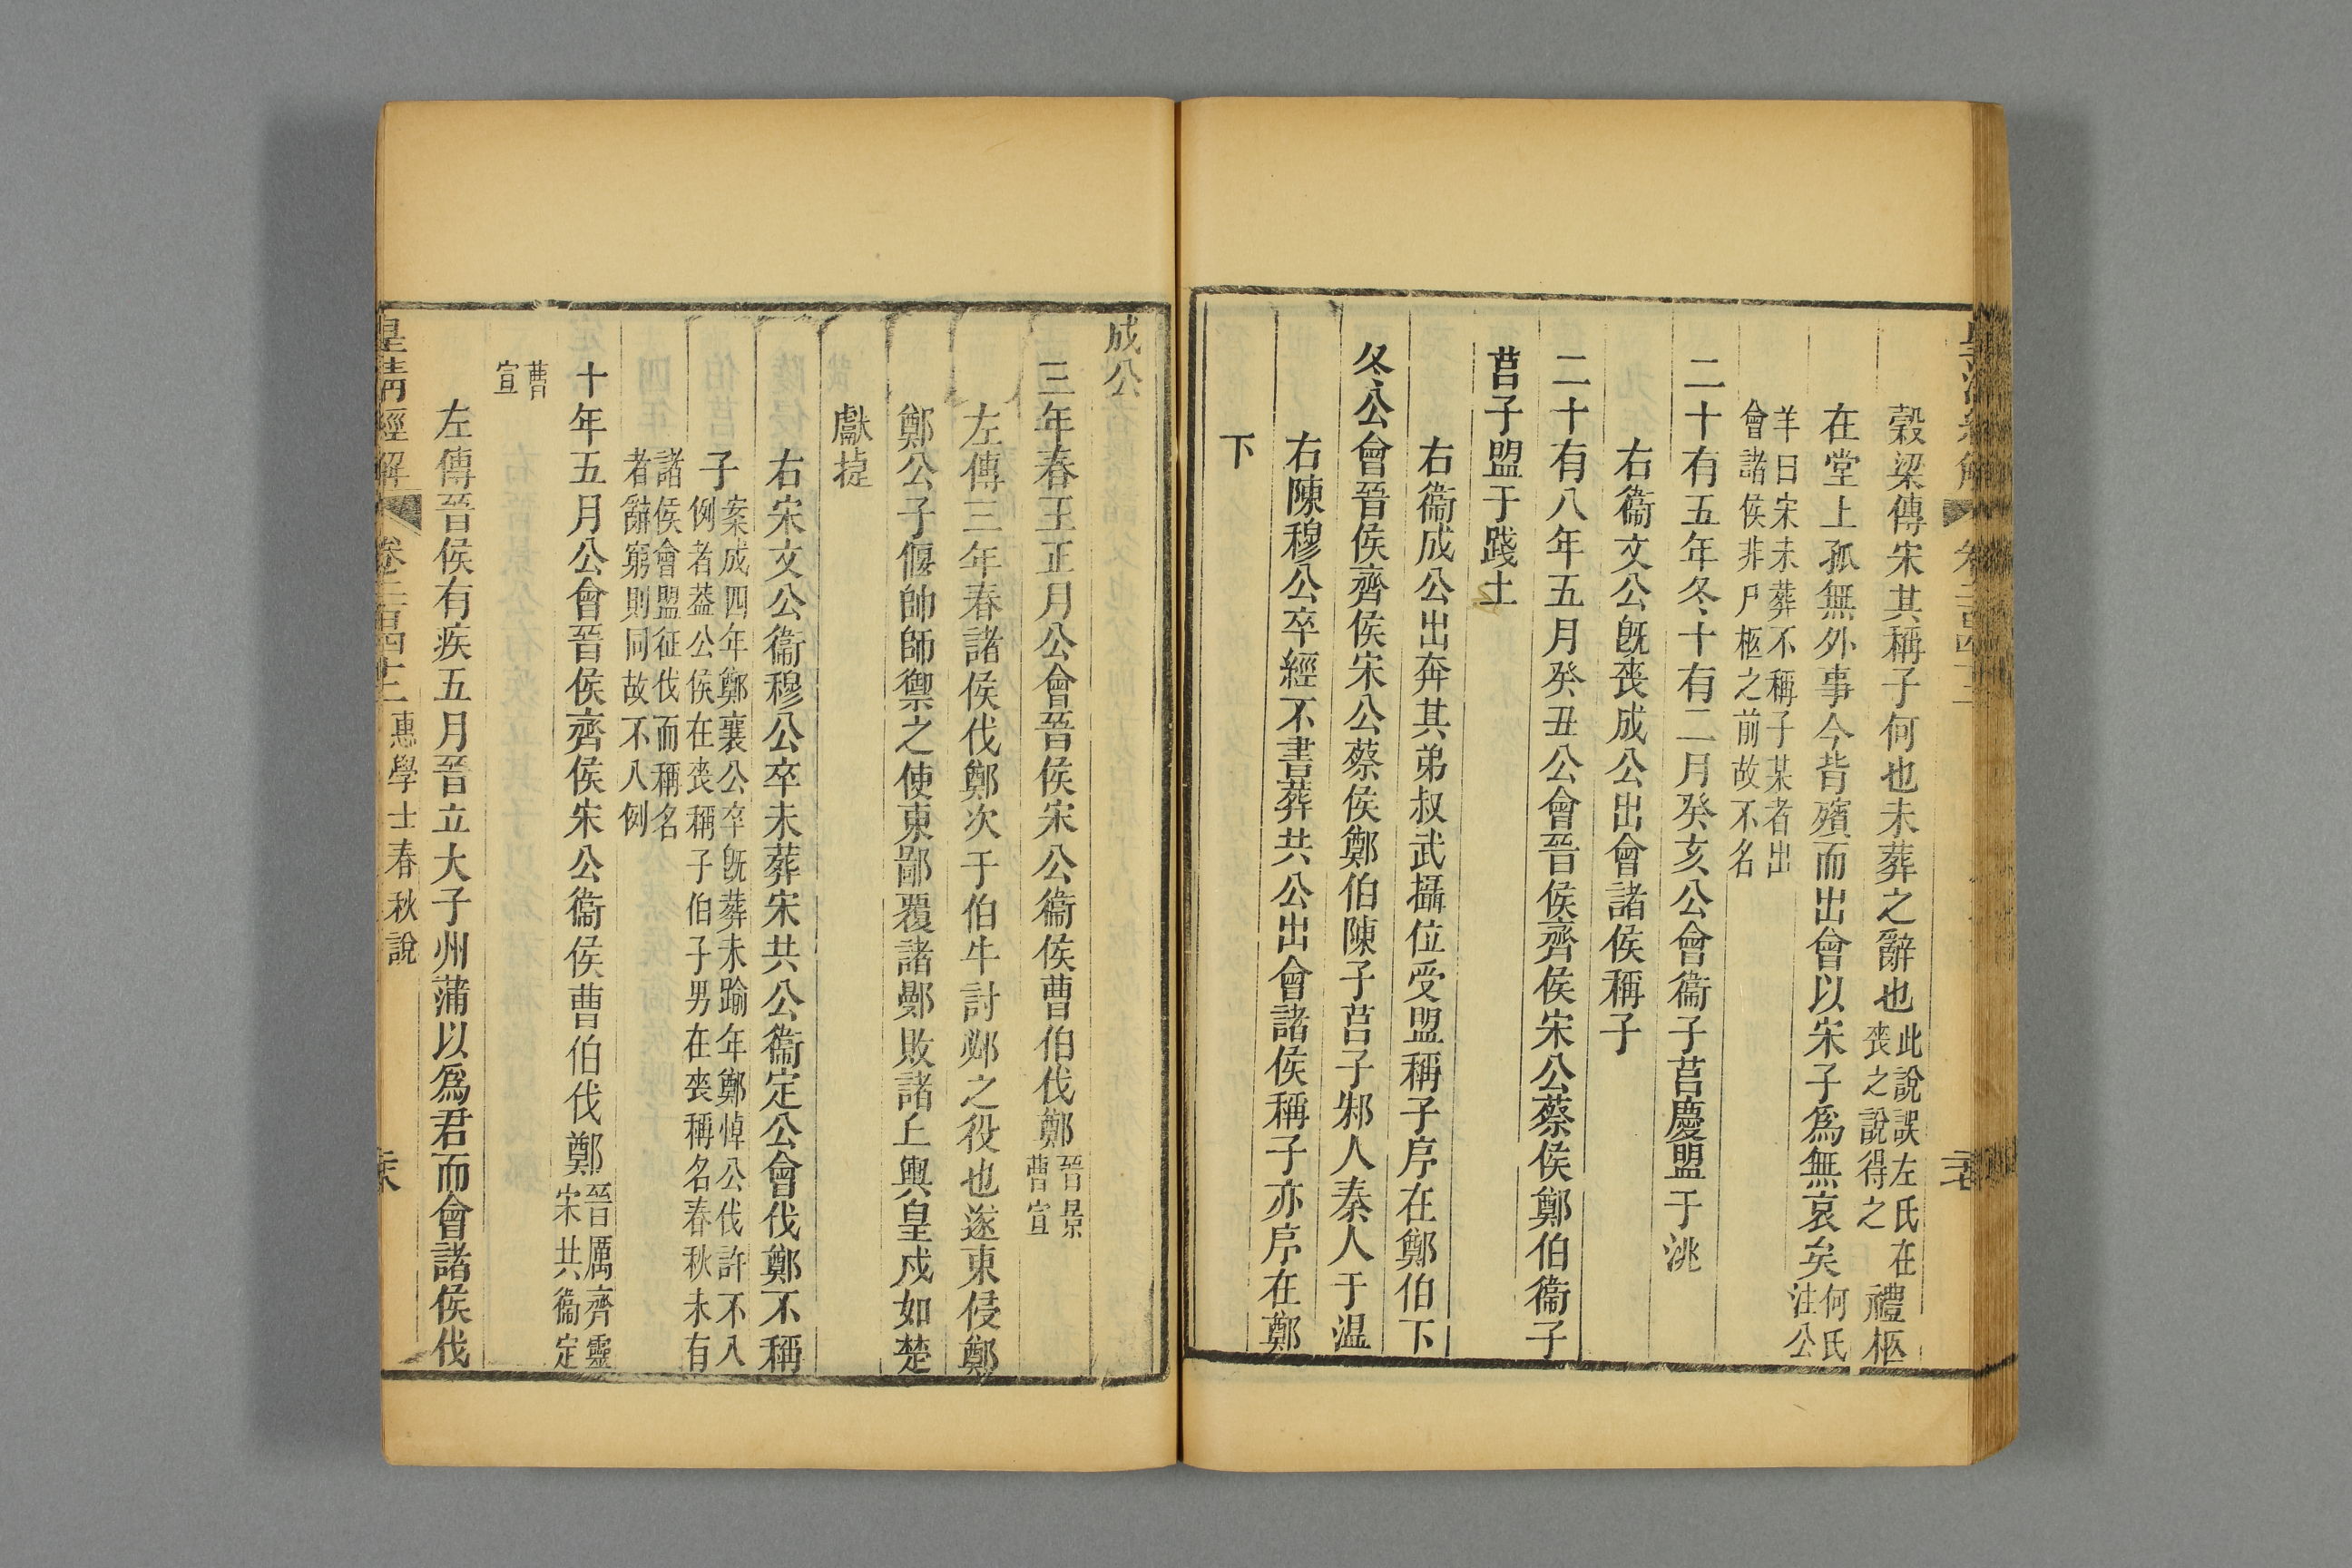 穀梁傳宋其稱子何也未葬之辭也此說誤左氏在喪之說得之禮柩
在堂上孤無外事今背殯而出會以宋子爲無哀矣何氏注公
羊曰宋未葬不稱子某者出會諸侯非尸柩之前故不名
二十有五年冬十有二月癸亥公會衞子莒慶盟于洮
右衞文公旣喪成公出會諸侯稱子
二十有八年五月癸丑公會晉侯齊侯宋公蔡侯鄭伯衞子
莒子盟于踐土
右衞成公出奔其弟叔武攝位受盟稱子序在鄭伯下
冬公會晉侯齊侯宋公蔡侯鄭伯陳子莒子邾人秦人于温
右陳穆公卒經不書葬共公出會諸侯稱子亦序在鄭
下
成公
三年春王正月公會晉侯宋公衞侯曹伯伐鄭晉景曹宣
左傳三年春諸侯伐鄭次于伯牛討邲之役也遂東侵鄭
鄭公子偃帥師禦之使東鄙覆諸鄤敗諸丘輿皇戍如楚
獻捷
右宋文公衞穆公卒未葬宋共公衞定公會伐鄭不稱
子案成四年鄭襄公卒旣葬未踰年鄭悼公伐許不入例者葢公侯在喪稱子伯子男在喪稱名春秋未有
諸侯會盟征伐而稱名者辭窮則同故不入例
十年五月公會晉侯齊侯宋公衞侯曹伯伐鄭晉厲齊靈宋共衞定
曹宣
左傳晉侯有疾五月晉立大子州蒲以爲君而會諸侯伐
皇淸經解 卷二百四十二 惠學士春秋說